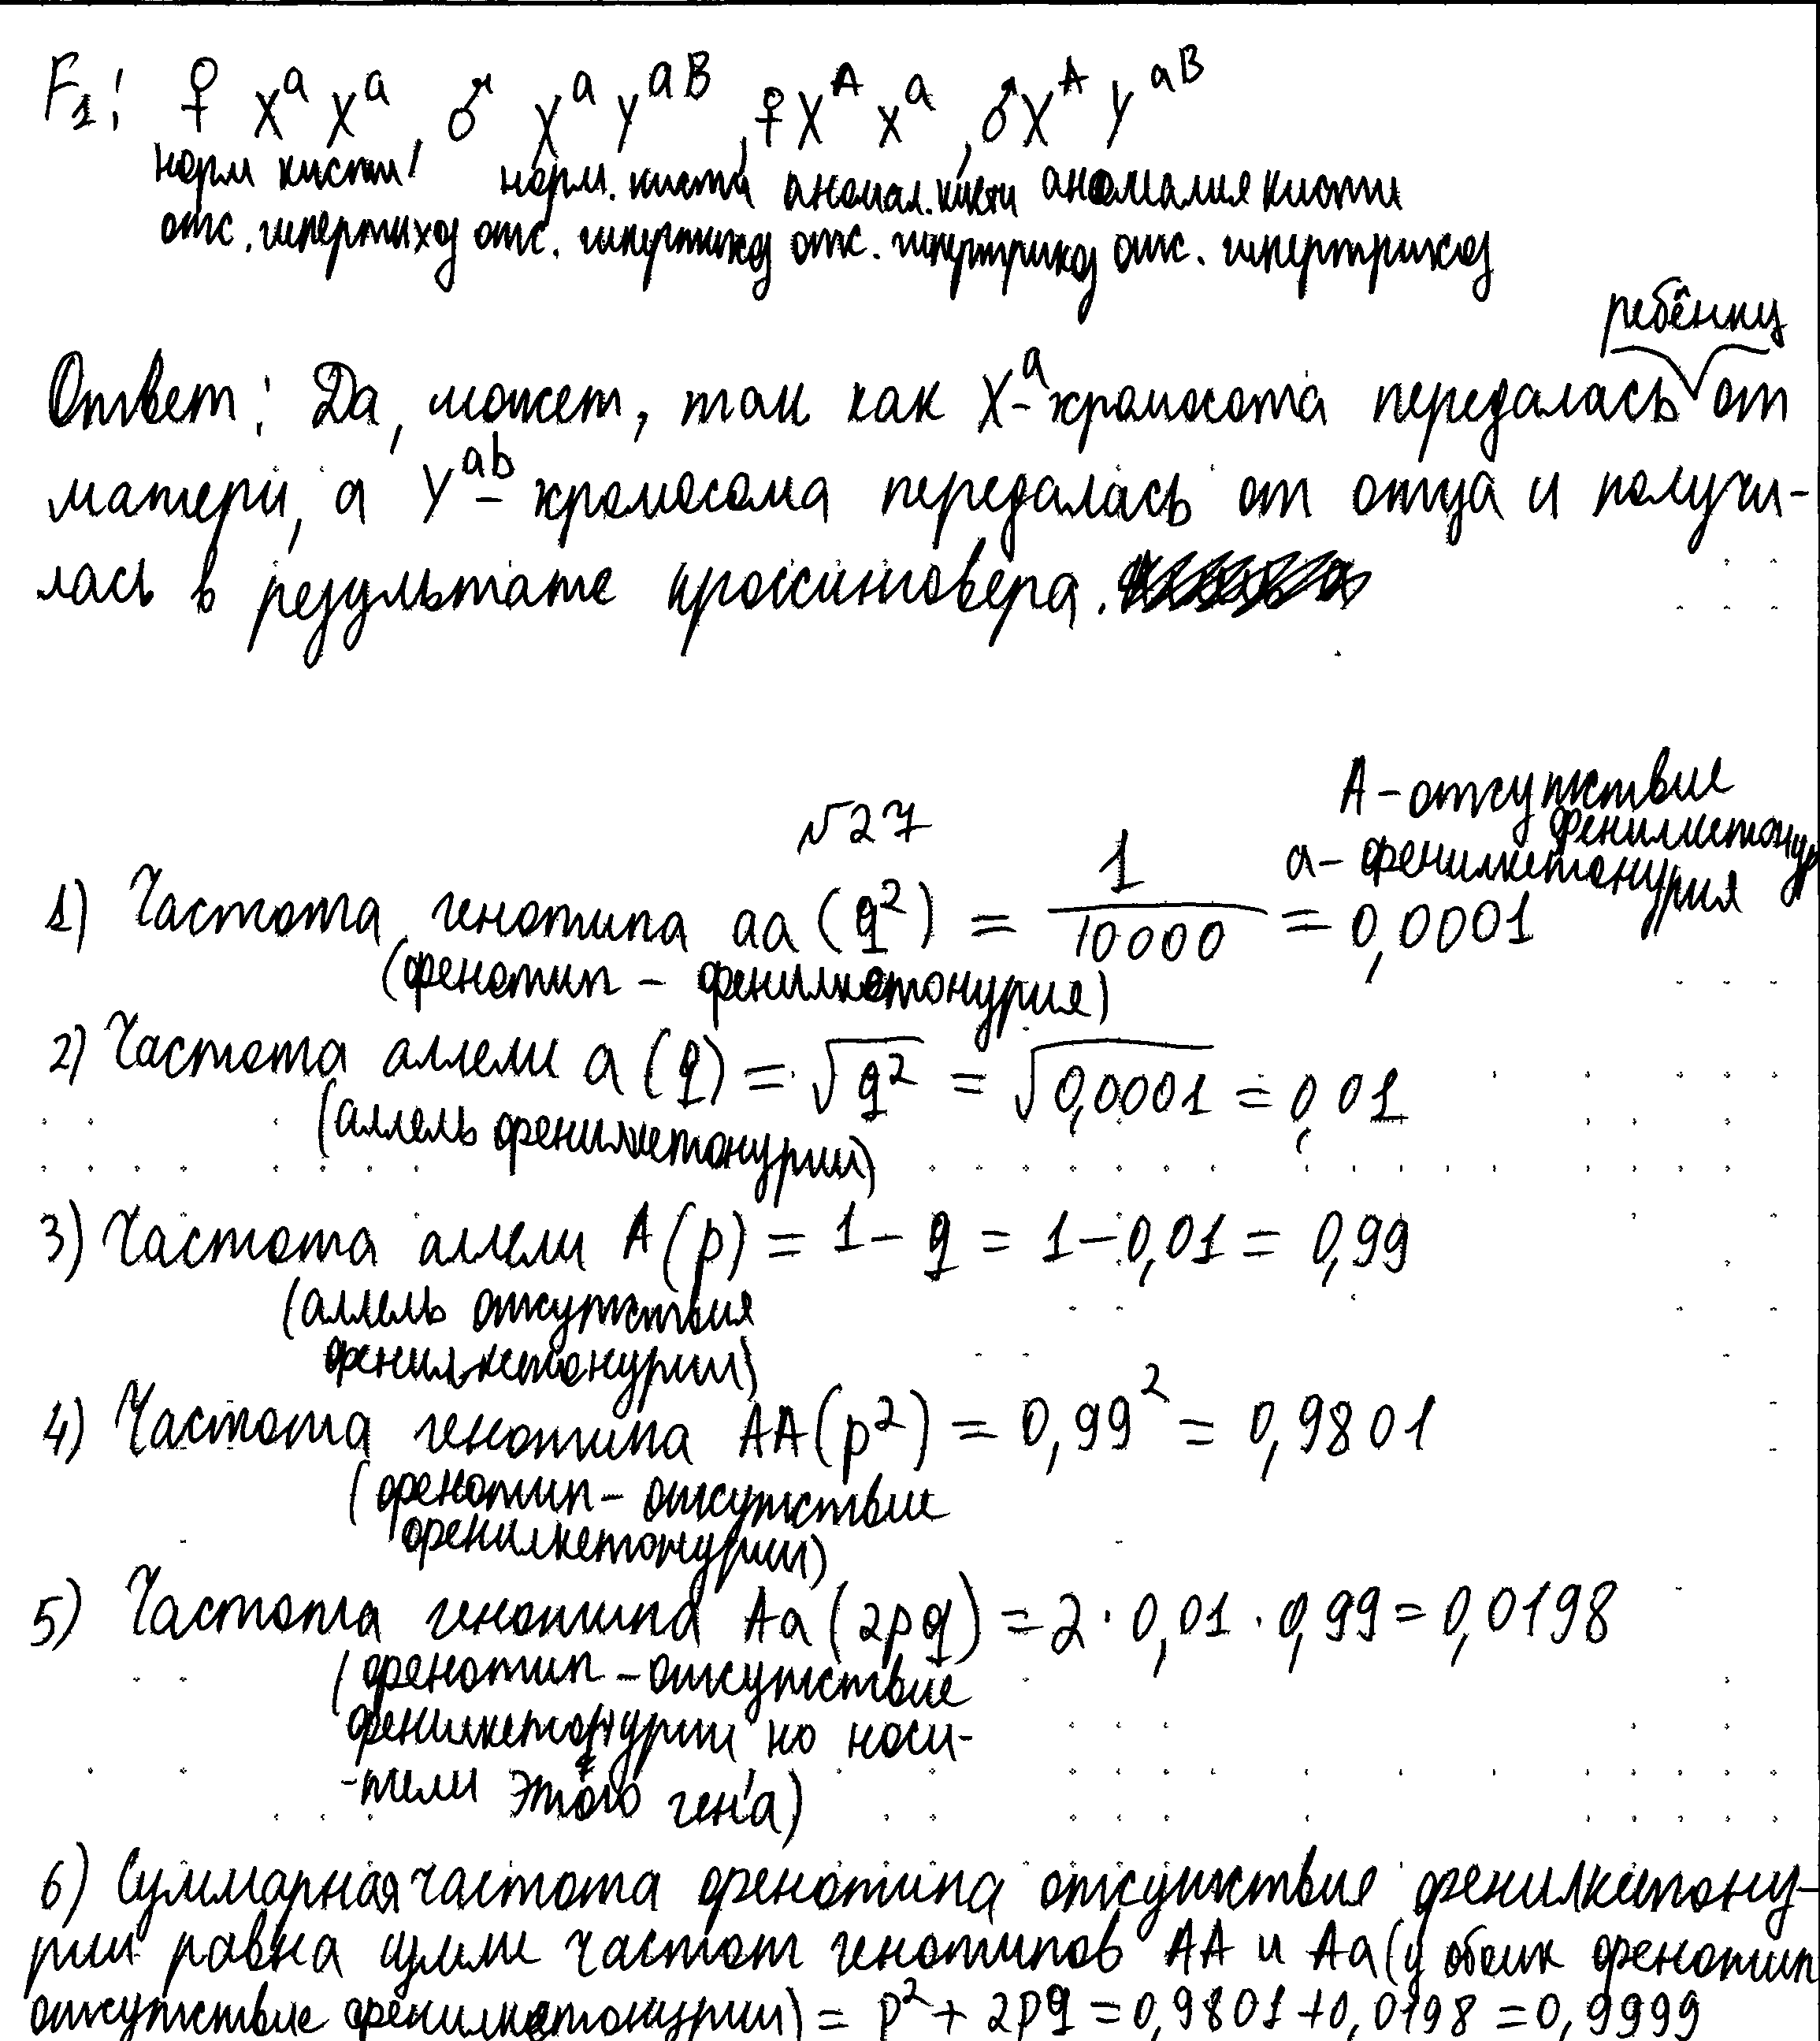 F₁: ♀ XᵃXᵃ, ♂ XᵃYᵃᴮ, ♀XᴬXᵃ, ♂XᴬYᵃᴮ
норм кисти норм. кисти аномал. кисти аномалия кисти
отс. гипертиход отс. гипертикоз отс. гипертрикоз отс. гипертрихоз
ребёнку
Ответ: Да, может, так как Xᵃ-хромосота передалась от
матери, а Yᵃᵇ-хромосома передалась от отца и получи-
лась в результате кроссинговера.
№27
A - отсутствие фенилкетонур
a - фенилкетонурия
1) Частота генотипа aa (q²) = 1/10000 = 0,0001
(фенотип - фенилкетонурия)
2) Частота аллели a (q) = √q² = √0,0001 = 0,01
(аллель фенилкетонурии)
3) Частота аллели A (p) = 1 - q = 1 - 0,01 = 0,99
(аллель отсутствия
фенилкетонурии)
4) Частота генотипа AA (p²) = 0,99² = 0,9801
(фенотип - отсутствие
фенилкетонурии)
5) Частота генотипа Aa (2pq) = 2 · 0,01 · 0,99 = 0,0198
(фенотип - отсутствие
фенилкетонурии но носи-
-тели этого гена)
6) Суммарная частота фенотипа отсутствия фенилкетону-
рии равна сумме частот генотипов AA и Aa (у обоих фенотип
отсутствие фенилкетонурии) = p² + 2pq = 0,9801 + 0,0198 = 0,9999